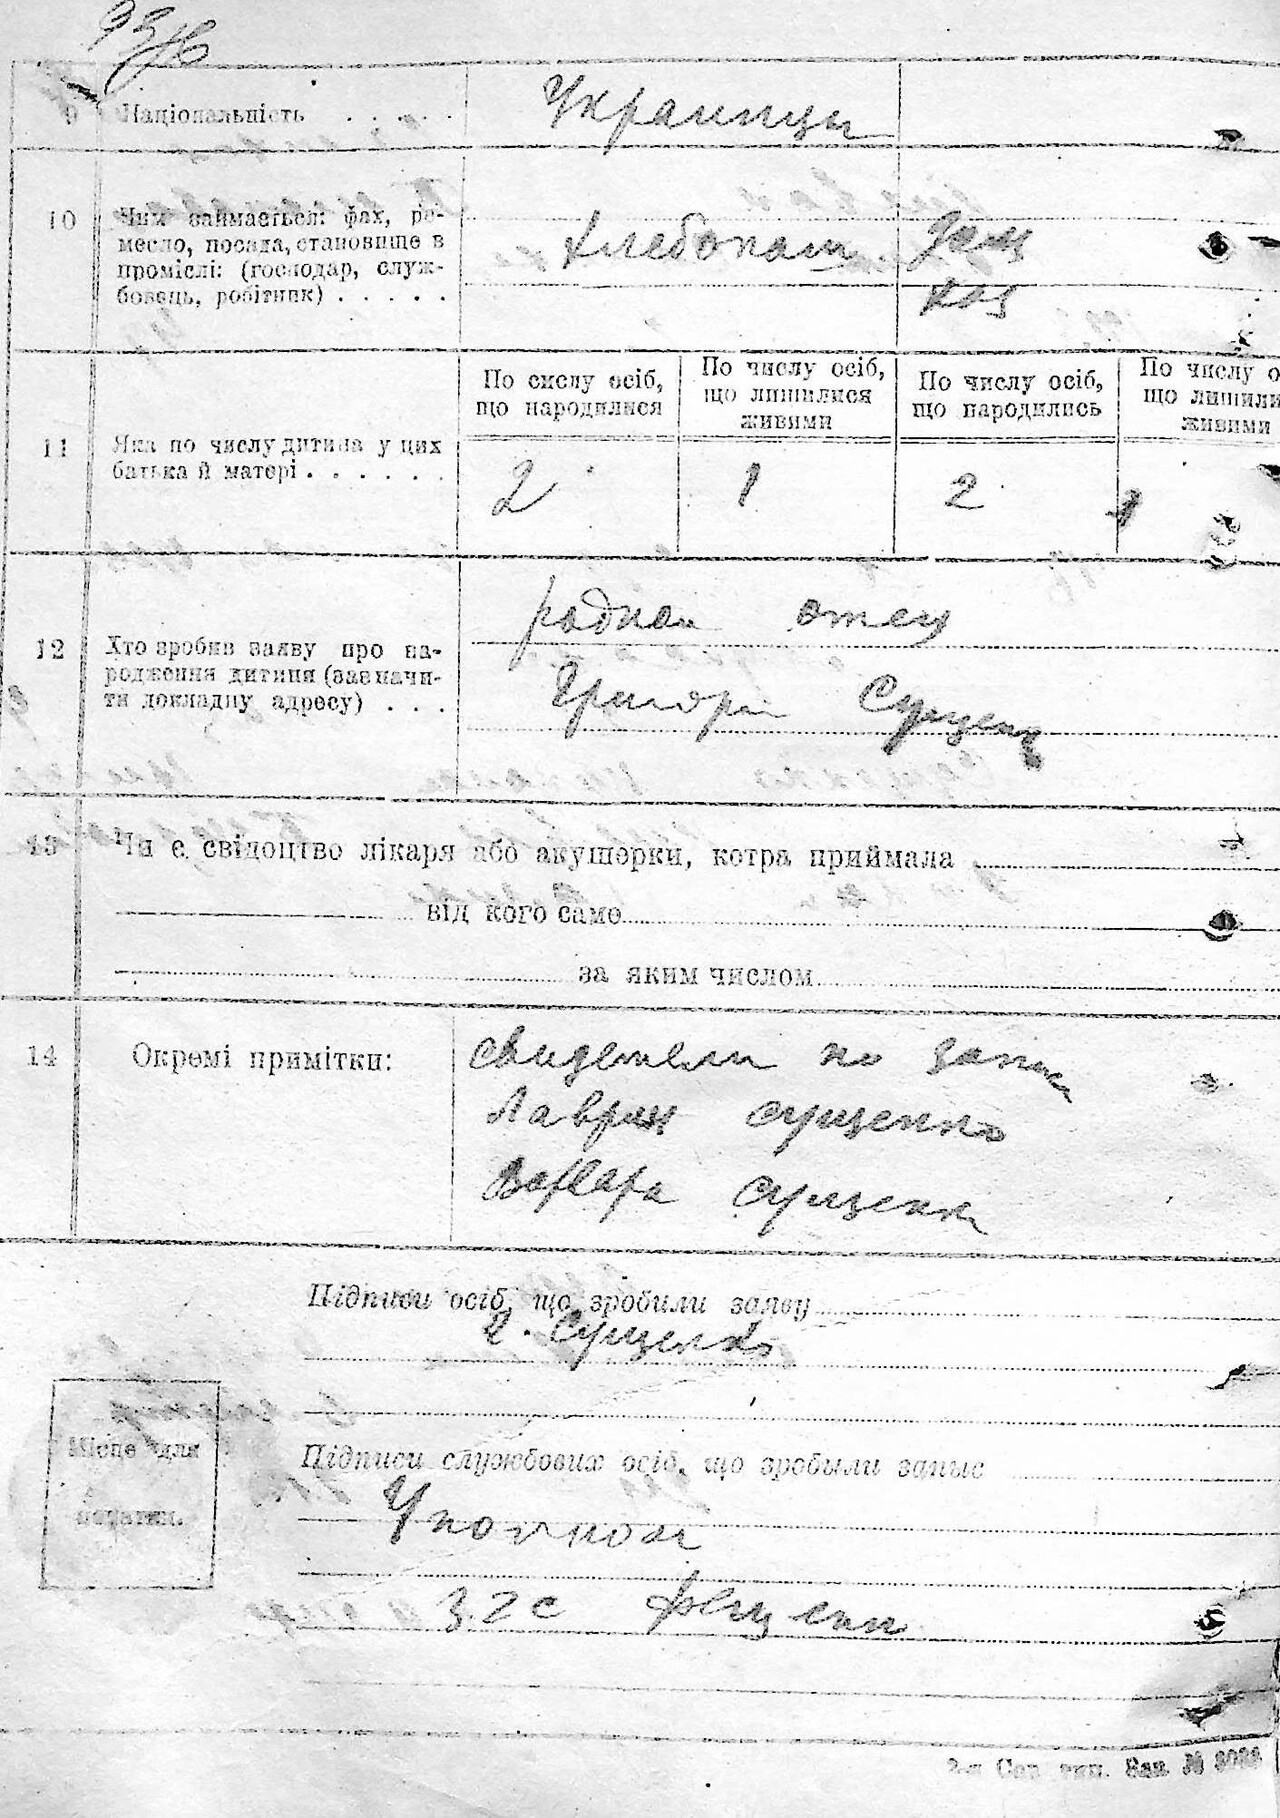 9 Національність . . . . . Украинцы
10 Чим займається: фах, ре-
месло, посада, становище в
проміслі: (господар, служ-
бовець, робітник) . . . . .
хлебопаш дом
хоз
11 Яка по числу дитина у цих
батька й матері . . . . . .
По числу осіб,
що народилися
По числу осіб,
що лишилися
живими
По числу осіб,
що народились
По числу о
що лишили
живими
2 1 2 1
12 Хто зробив заяву про на-
родження дитини (зазначи-
ти докладну адресу) . . .
родной отец
Григори Сущенк
13 Чи є свідоцтво лікаря або акушерки, котра приймала
від кого саме
за яким числом
14 Окремі примітки:
свидетели по запис
Лаврин Сущенко
Варвара Сущенк
Підписи осіб, що зробили заяву
Г. Сущенко
Місце для
печатки.
Підписи службових осіб, що зробили запис